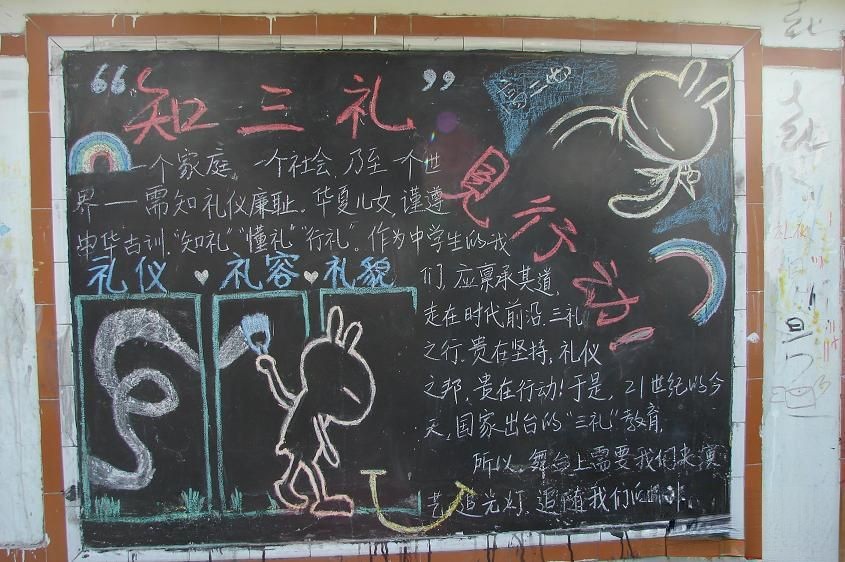 “知三礼”
见行动!
高二四
一个家庭,一个社会,乃至一个世
界——需知礼仪廉耻.华夏儿女,谨遵
中华古训.“知礼”“懂礼”“行礼”.作为中学生的我
礼仪 礼容 礼貌
们,应禀承其道,
走在时代前沿.三礼
之行.贵在坚持,礼仪
之邦,贵在行动!于是,21世纪的今
天,国家出台的“三礼”教育.
所以,舞台上需要我们来演
艺,追光灯,追随我们